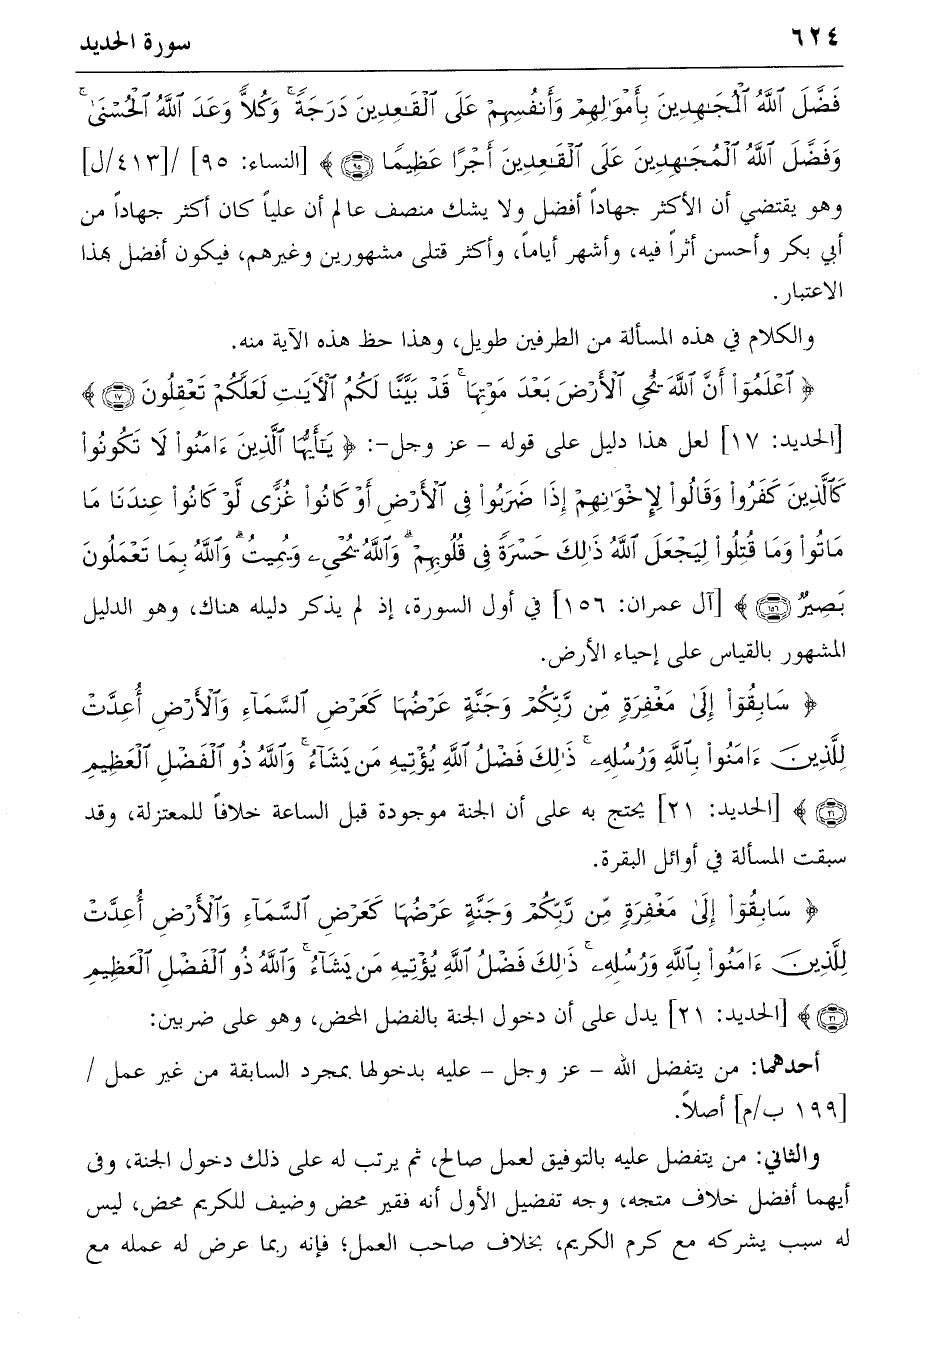 ٦٢٤
سورة الحديد
فَضَّلَ ٱللَّهُ ٱلْمُجَٰهِدِينَ بِأَمْوَٰلِهِمْ وَأَنفُسِهِمْ عَلَى ٱلْقَٰعِدِينَ دَرَجَةً ۚ وَكُلًّا وَعَدَ ٱللَّهُ ٱلْحُسْنَىٰ ۚ
وَفَضَّلَ ٱللَّهُ ٱلْمُجَٰهِدِينَ عَلَى ٱلْقَٰعِدِينَ أَجْرًا عَظِيمًا ۝٩٥ ﴾ [النساء: ٩٥] /[٤١٣/ل]
وهو يقتضي أن الأكثر جهاداً أفضل ولا يشك منصف عالم أن علياً كان أكثر جهاداً من
أبي بكر وأحسن أثراً فيه، وأشهر أياماً، وأكثر قتلى مشهورين وغيرهم، فيكون أفضل بهذا
الاعتبار.
والكلام في هذه المسألة من الطرفين طويل، وهذا حظ هذه الآية منه.
﴿ ٱعْلَمُوٓا۟ أَنَّ ٱللَّهَ يُحْىِ ٱلْأَرْضَ بَعْدَ مَوْتِهَا ۚ قَدْ بَيَّنَّا لَكُمُ ٱلْأَيَٰتِ لَعَلَّكُمْ تَعْقِلُونَ ۝١٧ ﴾
[الحديد: ١٧] لعل هذا دليل على قوله - عز وجل-: ﴿ يَٰٓأَيُّهَا ٱلَّذِينَ ءَامَنُوا۟ لَا تَكُونُوا۟
كَٱلَّذِينَ كَفَرُوا۟ وَقَالُوا۟ لِإِخْوَٰنِهِمْ إِذَا ضَرَبُوا۟ فِى ٱلْأَرْضِ أَوْ كَانُوا۟ غُزًّى لَّوْ كَانُوا۟ عِندَنَا مَا
مَاتُوا۟ وَمَا قُتِلُوا۟ لِيَجْعَلَ ٱللَّهُ ذَٰلِكَ حَسْرَةً فِى قُلُوبِهِمْ ۗ وَٱللَّهُ يُحْىِۦ وَيُمِيتُ ۗ وَٱللَّهُ بِمَا تَعْمَلُونَ
بَصِيرٌ ۝١٥٦ ﴾ [آل عمران: ١٥٦] في أول السورة، إذ لم يذكر دليله هناك، وهو الدليل
المشهور بالقياس على إحياء الأرض.
﴿ سَابِقُوٓا۟ إِلَىٰ مَغْفِرَةٍ مِّن رَّبِّكُمْ وَجَنَّةٍ عَرْضُهَا كَعَرْضِ ٱلسَّمَآءِ وَٱلْأَرْضِ أُعِدَّتْ
لِلَّذِينَ ءَامَنُوا۟ بِٱللَّهِ وَرُسُلِهِۦ ۚ ذَٰلِكَ فَضْلُ ٱللَّهِ يُؤْتِيهِ مَن يَشَآءُ ۚ وَٱللَّهُ ذُو ٱلْفَضْلِ ٱلْعَظِيمِ
۝٢١ ﴾ [الحديد: ٢١] يحتج به على أن الجنة موجودة قبل الساعة خلافاً للمعتزلة، وقد
سبقت المسألة في أوائل البقرة.
﴿ سَابِقُوٓا۟ إِلَىٰ مَغْفِرَةٍ مِّن رَّبِّكُمْ وَجَنَّةٍ عَرْضُهَا كَعَرْضِ ٱلسَّمَآءِ وَٱلْأَرْضِ أُعِدَّتْ
لِلَّذِينَ ءَامَنُوا۟ بِٱللَّهِ وَرُسُلِهِۦ ۚ ذَٰلِكَ فَضْلُ ٱللَّهِ يُؤْتِيهِ مَن يَشَآءُ ۚ وَٱللَّهُ ذُو ٱلْفَضْلِ ٱلْعَظِيمِ
۝٢١ ﴾ [الحديد: ٢١] يدل على أن دخول الجنة بالفضل المحض، وهو على ضربين:
أحدهما: من يتفضل الله - عز وجل - عليه بدخولها بمجرد السابقة من غير عمل /
[١٩٩ ب/م] أصلاً.
والثاني: من يتفضل عليه بالتوفيق لعمل صالح، ثم يرتب له على ذلك دخول الجنة، وفى
أيهما أفضل خلاف متجه، وجه تفضيل الأول أنه فقير محض وضيف للكريم محض، ليس
له سبب يشركه مع كرم الكريم، بخلاف صاحب العمل؛ فإنه ربما عرض له عمله مع